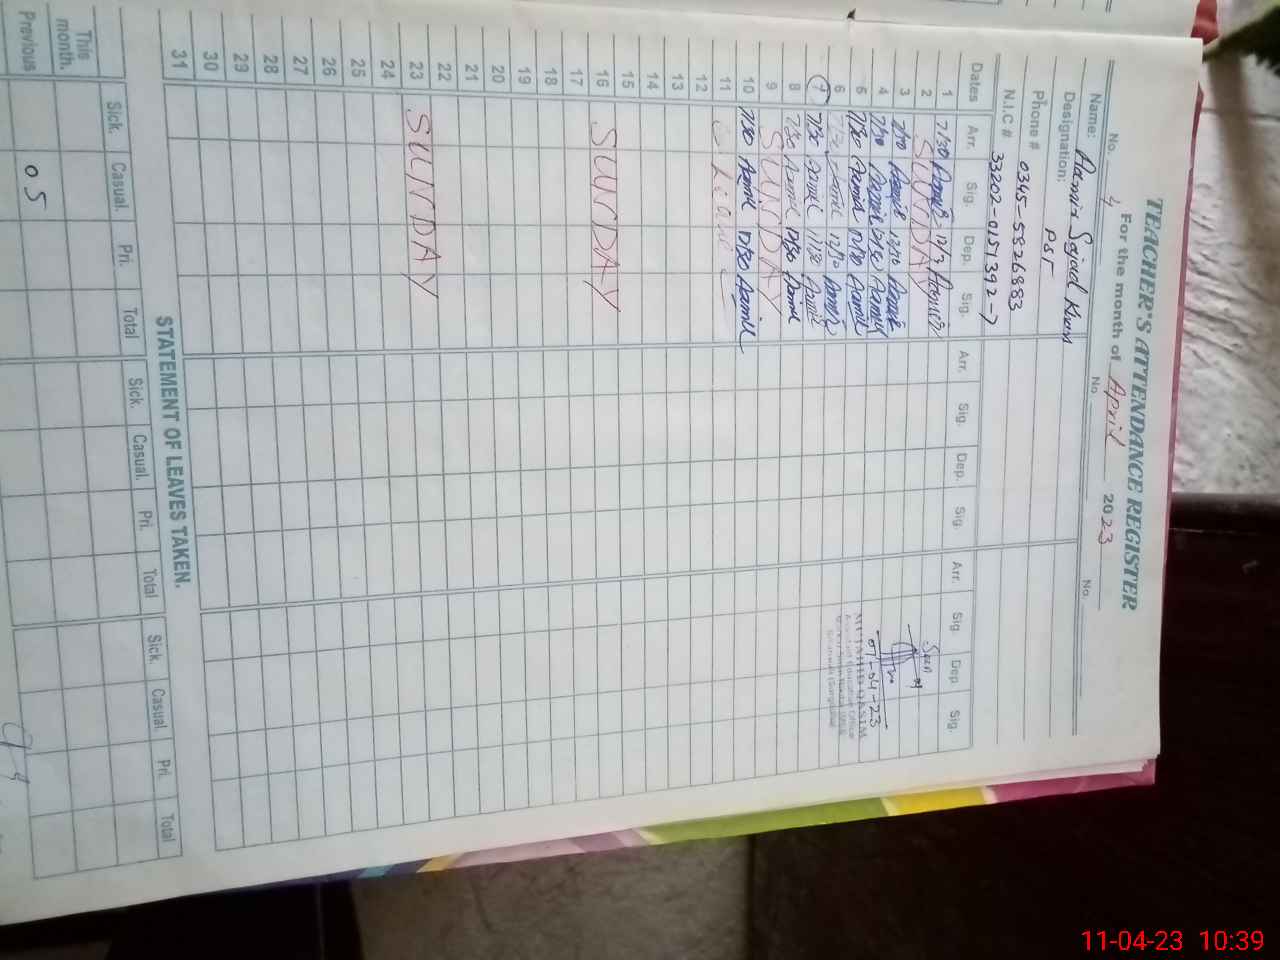 TEACHER'S ATTENDANCE REGISTER
For the month of April 2023
No. 4 No. No.
Name: Aamir Sajad Khan
Designation: PST
Phone # 0345-5826883
N.I.C # 33202-0151392-7
Dates Arr. Sig. Dep. Sig. Arr. Sig. Dep. Sig. Arr. Sig. Dep. Sig.
1 7/30 12/3 Seen
2 SUNDAY
3 7/30 12/30
4 7/30 07-04-23
5 7/30 12/30 Aamir
6 7/30 12/30
7 7/30 Aamir 11/30 Aamir
8 7/30 Aamir 12/30 Aamir
9 SUNDAY
10 7/30 Aamir 12/30 Aamir
11
12
13
14
15
16 SUNDAY
17
18
19
20
21
22
23 SUNDAY
24
25
26
27
28
29
30
31
STATEMENT OF LEAVES TAKEN.
Sick. Casual. Pri. Total Sick. Casual. Pri. Total Sick. Casual. Pri. Total
This month.
Previous 05
11-04-23 10:39